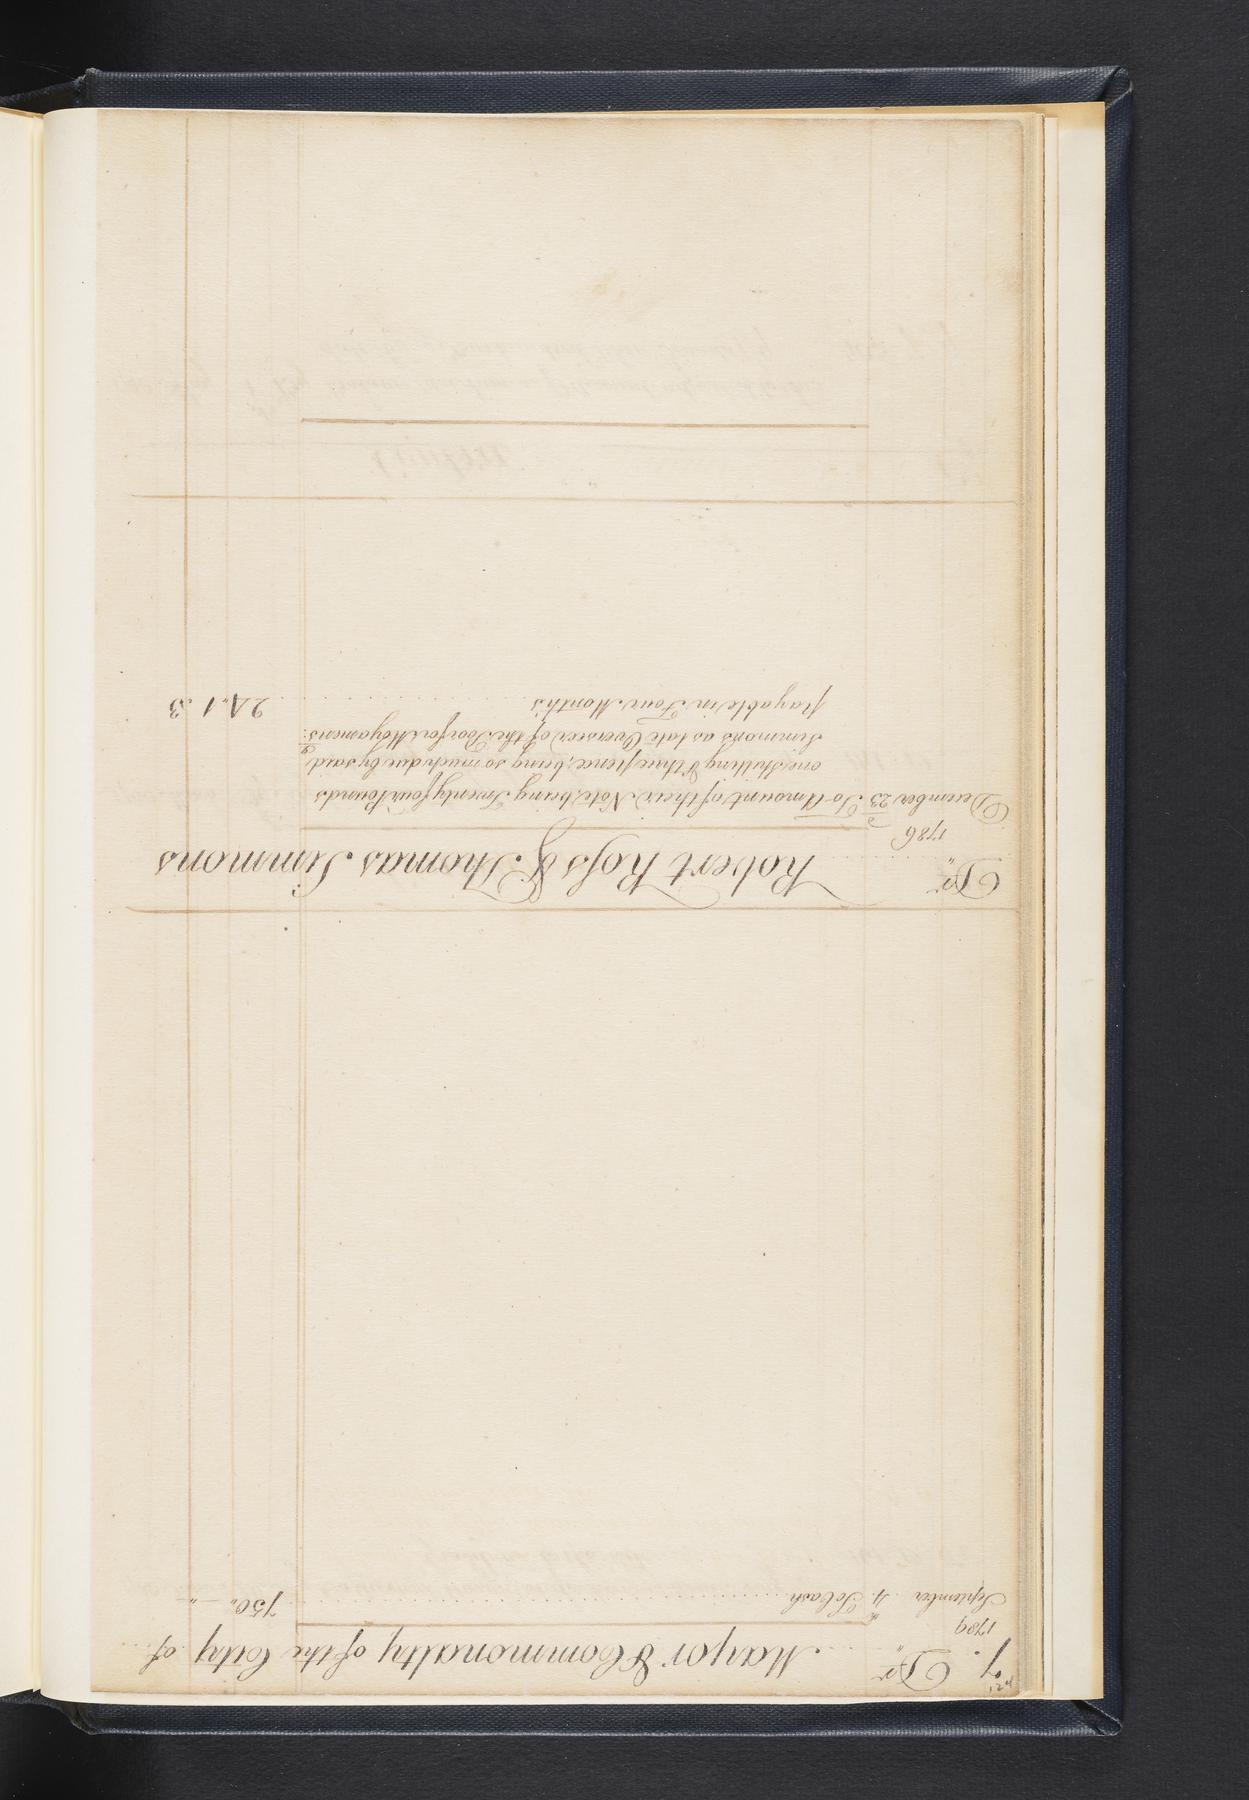 124
7. Dr. Mayor & Commonalty of the City of
1789
September 4th To Cash 750 " — " —
Dr. Robert Ross & Thomas Simmons
1786
December 23d To Amount of their Note, being Twenty four Pounds
one Shilling & three pence, being so much due by said
Simmons as late Overseer of the Poor for Moyamensg:
payable in Four Months 24 " 1 " 3